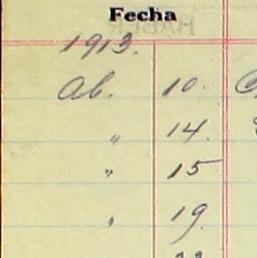 Fecha
1913.
Ab. 10.
" 14.
" 15
" 19.